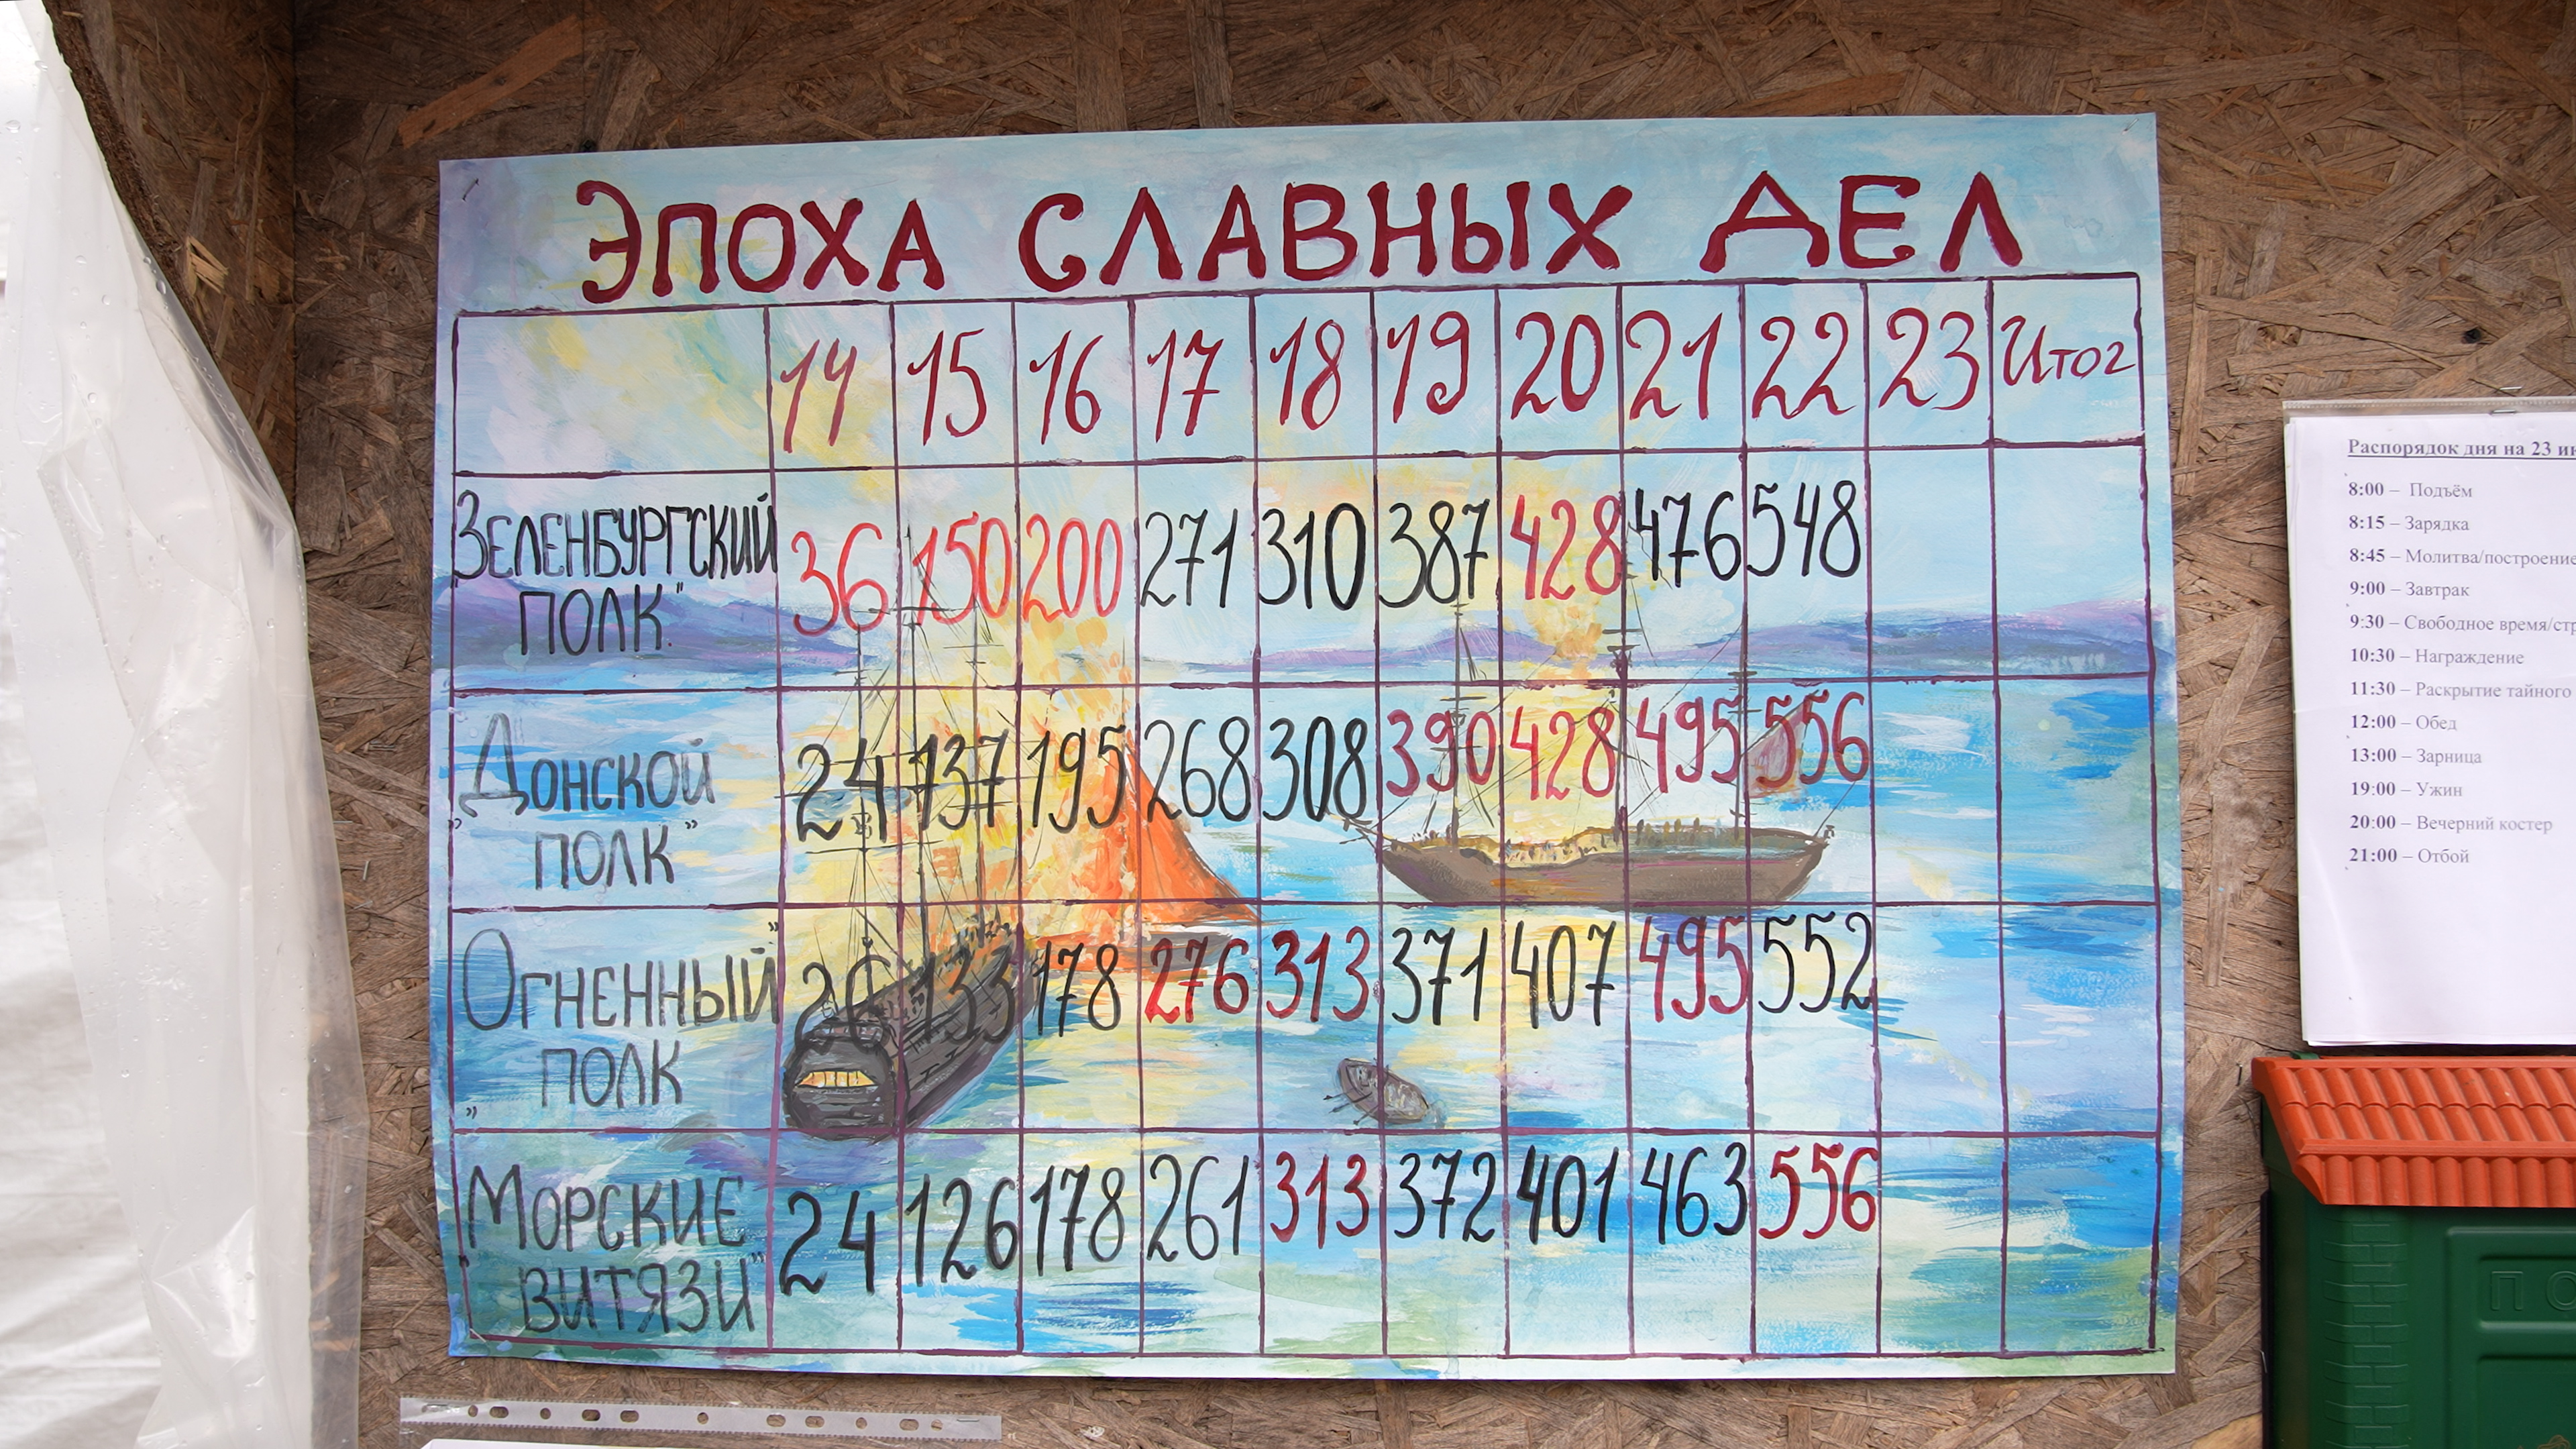 ЭПОХА СЛАВНЫХ ДЕЛ
14 15 16 17 18 19 20 21 22 23 Итог
Зеленбургский 36 150 200 271 310 387 428 476 548
полк"
Донской 24 137 195 268 308 390 428 495 556
"полк"
Огненный" 26 133 178 276 313 371 407 495 552
"полк
Морские 24 126 178 261 313 372 401 463 556
"витязи"
Распорядок дня на 23
8:00 – Подъём
8:15 – Зарядка
8:45 – Молитва/построение
9:00 – Завтрак
9:30 – Свободное время/
10:30 – Награждение
11:30 – Раскрытие тайного
12:00 – Обед
13:00 – Зарница
19:00 – Ужин
20:00 – Вечерний костер
21:00 – Отбой